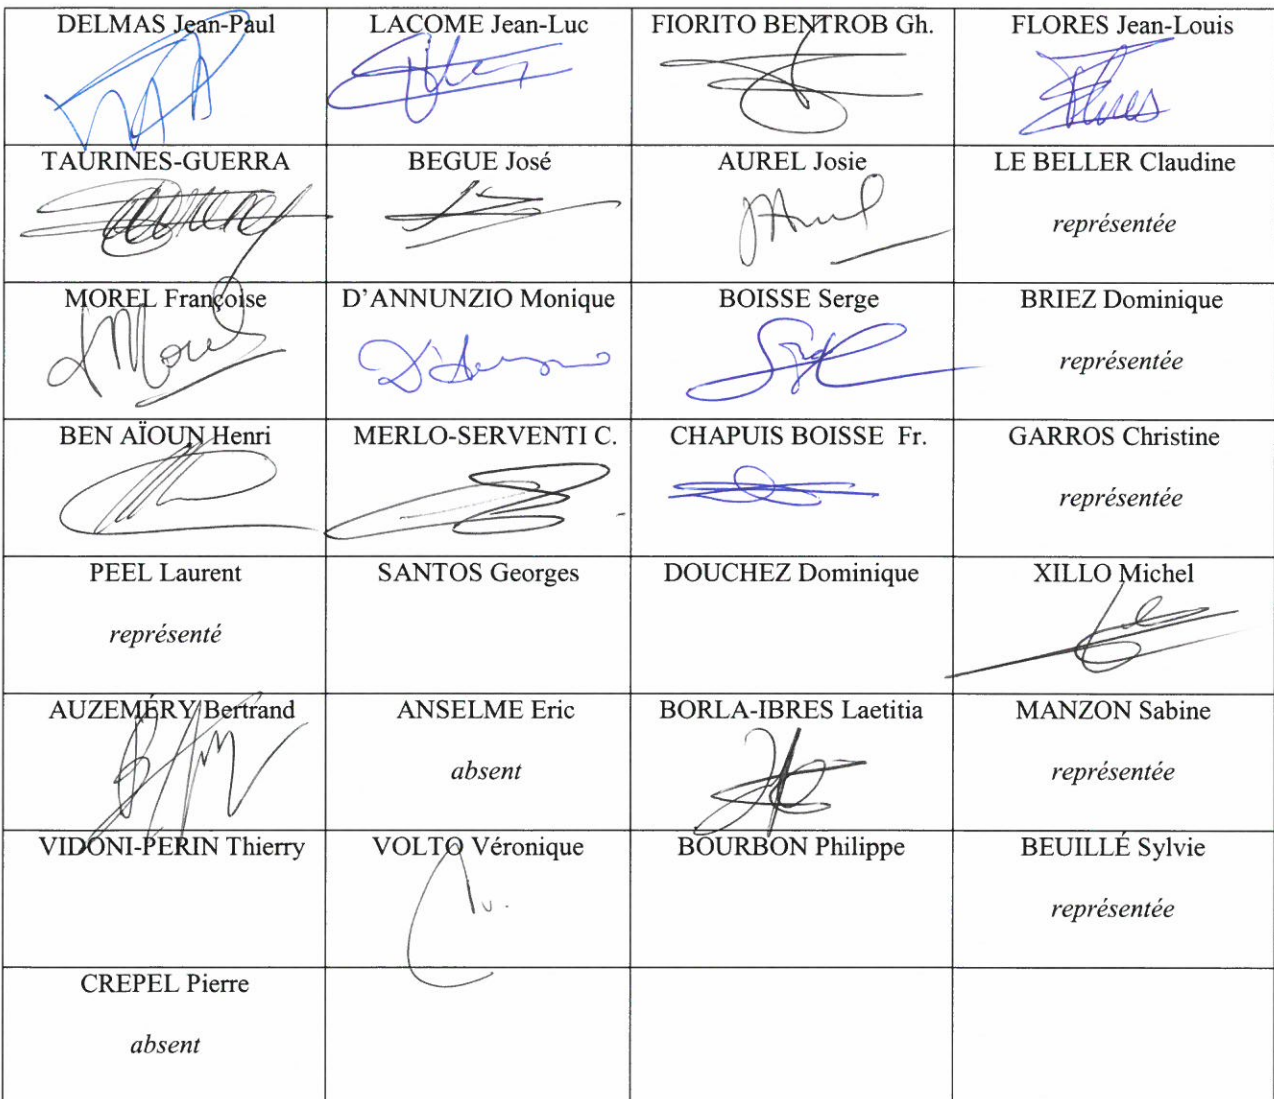 DELMAS Jean-Paul
LACOME Jean-Luc
FIORITO BENTROB Gh.
FLORES Jean-Louis
Flores
TAURINES-GUERRA
BEGUE José
AUREL Josie
LE BELLER Claudine
représentée
MOREL Françoise
D'ANNUNZIO Monique
BOISSE Serge
BRIEZ Dominique
représentée
BEN AÏOUN Henri
MERLO-SERVENTI C.
CHAPUIS BOISSE Fr.
GARROS Christine
représentée
PEEL Laurent
représenté
SANTOS Georges
DOUCHEZ Dominique
XILLO Michel
AUZEMÉRY Bertrand
ANSELME Eric
absent
BORLA-IBRES Laetitia
MANZON Sabine
représentée
VIDONI-PERIN Thierry
VOLTO Véronique
BOURBON Philippe
BEUILLÉ Sylvie
représentée
CREPEL Pierre
absent